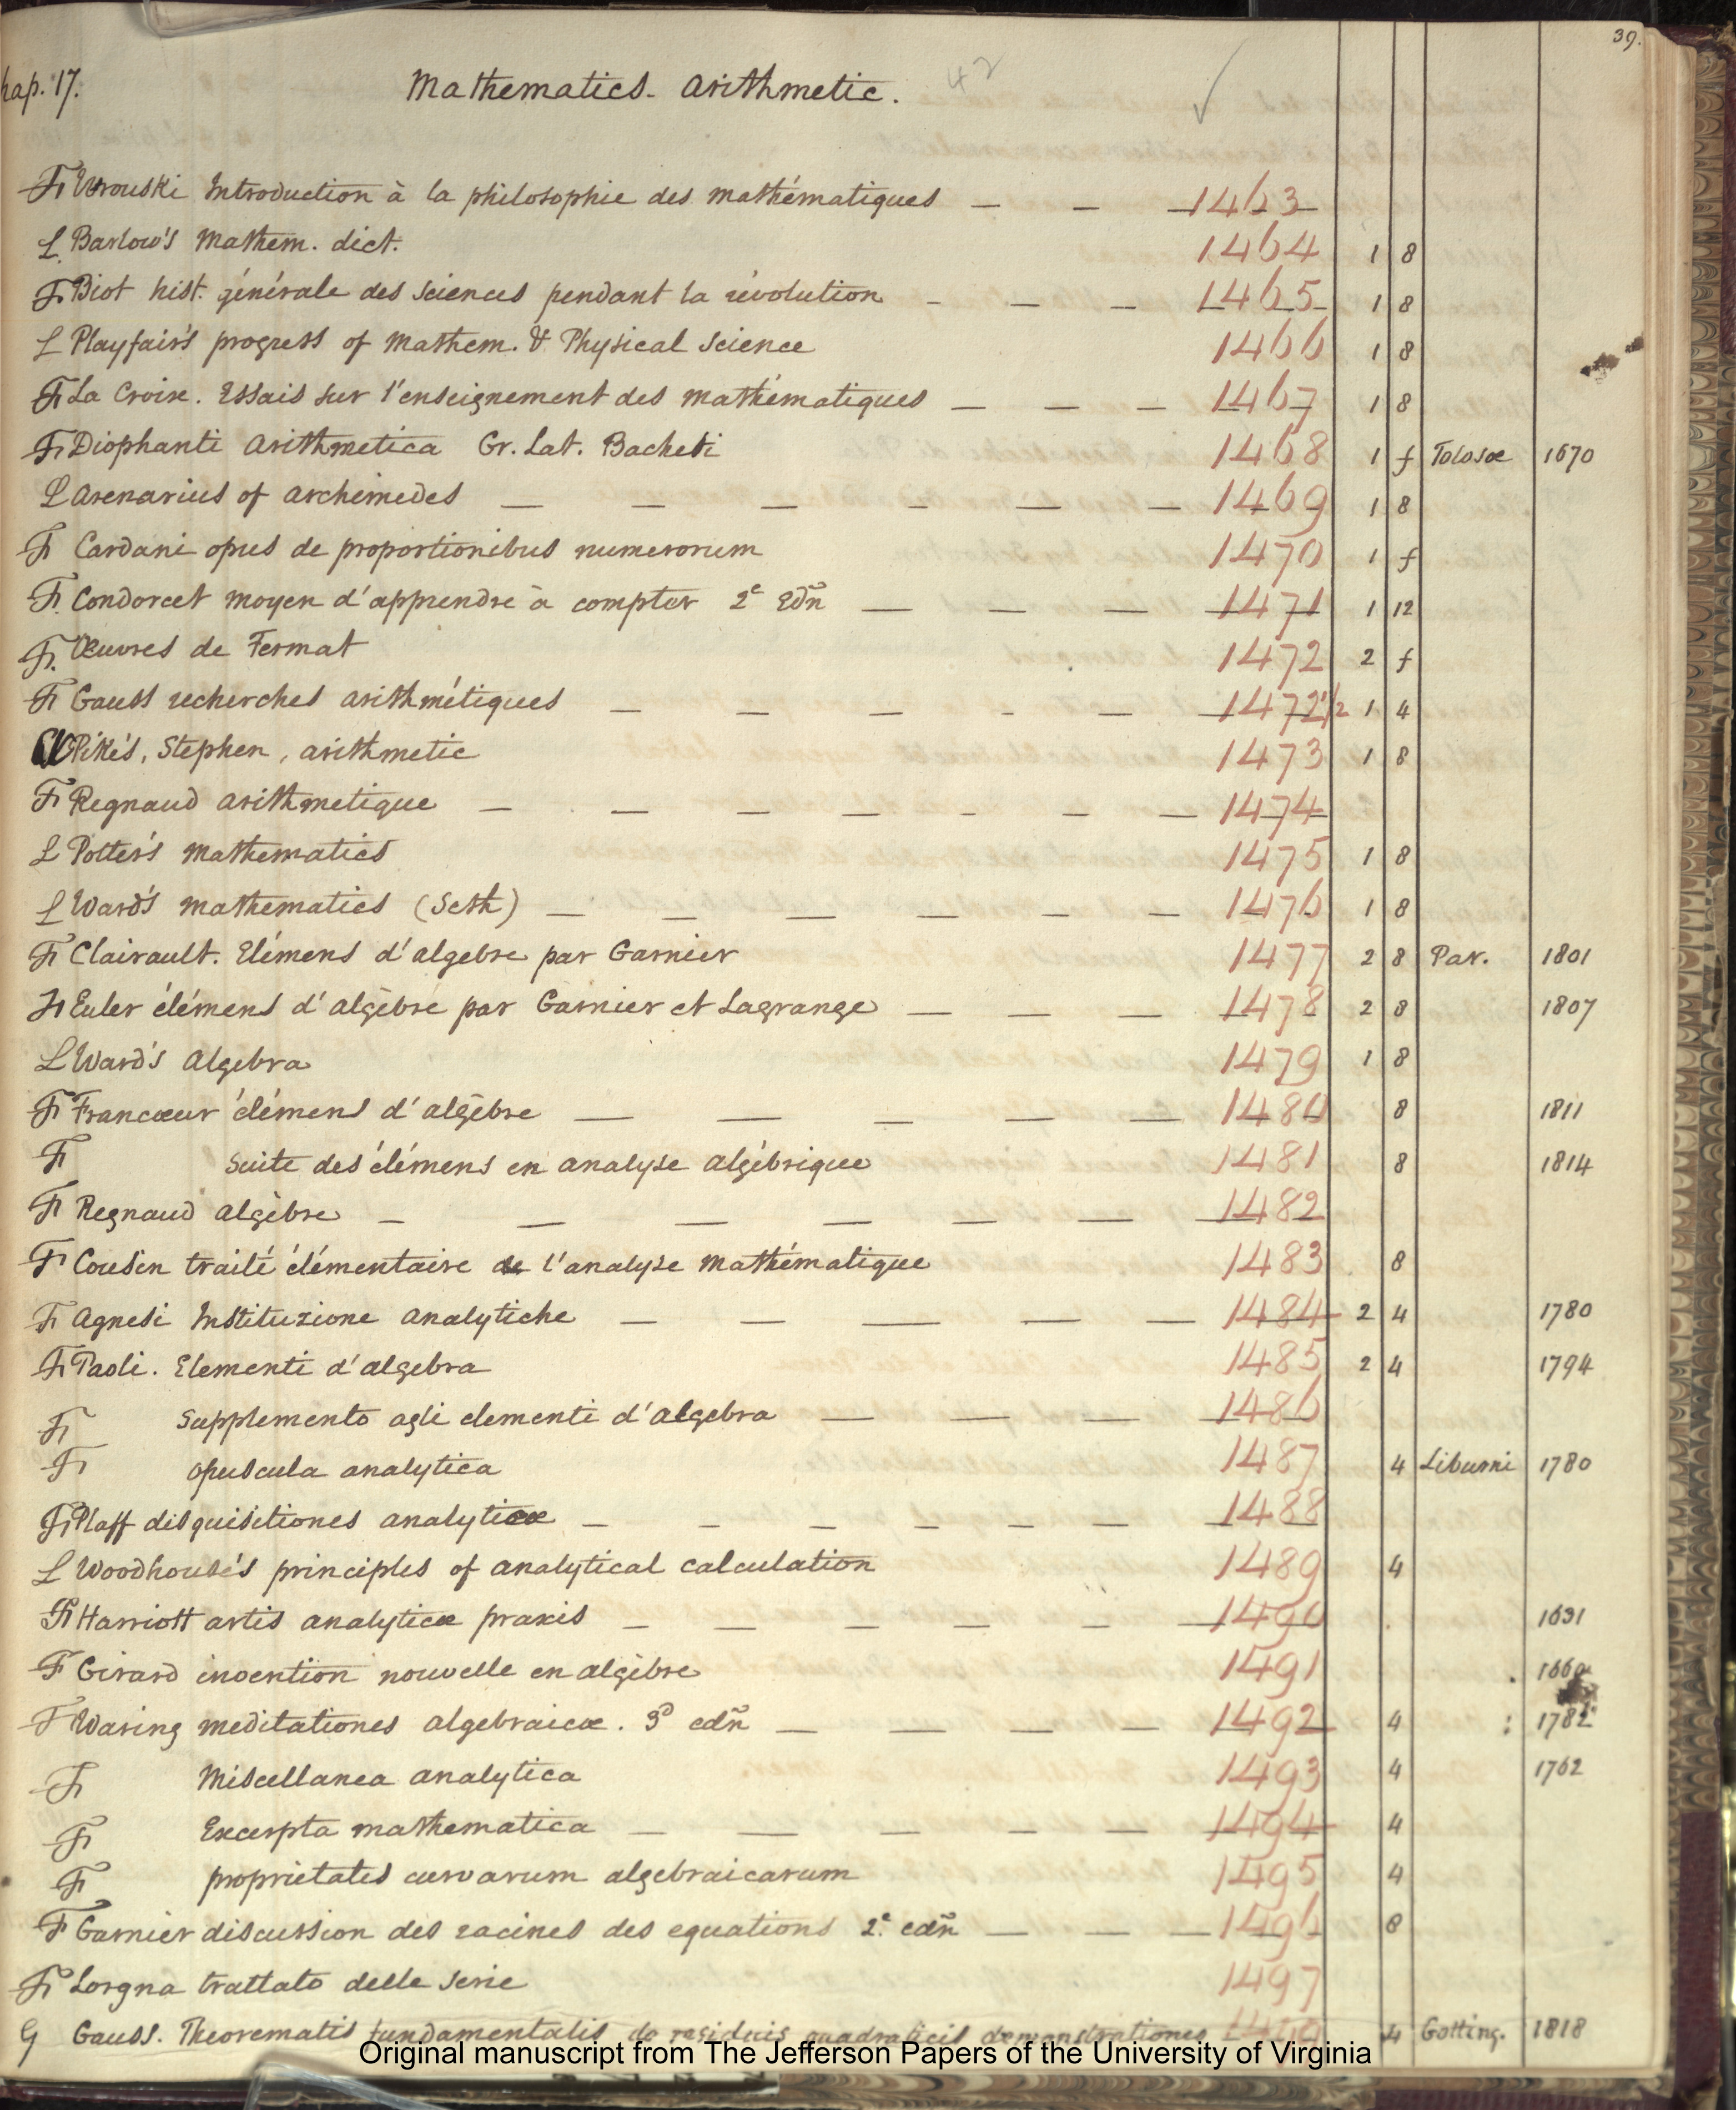 39.
hap. 17. Mathematics. Arithmetic. 42 ✓
Fr Wronski Introduction à la philosophie des mathématiques — — 1463
L. Barlow's Mathem. dict. 1464 1 8
Fr Biot hist. générale des sciences pendant la révolution - — — 1465 1 8
L Playfair's progress of Mathem. & Physical Science 1466 1 8
Fr La Croix. Essais sur l'enseignement des mathématiques — — — 1467 1 8
Fr Diophanti Arithmetica Gr. Lat. Bacheti 1468 1 f Tolosæ 1670
L Arenarius of Archimedes — — — - — — 1469 1 8
Fr Cardani opus de proportionibus numerorum 1470 1 f
Fr. Condorcet moyen d'apprendre à compter 2e Edñ — — — 1471 1 12
Fr. Œuvres de Fermat 1472 2 f
Fr Gauss recherches arithmétiques — — — - — 1472 1/2 1 4
Pike's, Stephen, arithmetic 1473 1 8
Fr Regnaud arithmetique — — — — - — — 1474
L Potter's mathematics 1475 1 8
L Ward's mathematics (Seth) — — — — — — 1476 1 8
Fr Clairault. Elémens d'algebre par Garnier 1477 2 8 Par. 1801
Fr Euler élémens d'algèbre par Garnier et Lagrange — — — 1478 2 8 1807
L Ward's Algebra 1479 1 8
Fr Francœur élémens d'algèbre — — — — — 1480 8 1811
Fr Suite des élémens en analyse algébrique 1481 8 1814
Fr Regnaud algèbre - — — — — — 1482
Fr Cousin traité élémentaire de l'analyse mathématique 1483 8
Fr Agnesi Instituzione analytiche — — — — — 1484 2 4 1780
Fr Paoli. Elementi d'algebra 1485 2 4 1794
Fr Supplemento agli elementi d'algebra — — — 1486
Fr opuscula analytica 1487 4 Liburni 1780
Fr Plaff disquisitiones analyticæ — - — — — — 1488
L Woodhouse's principles of analytical calculation 1489 4
Fr Harriott artis analyticæ praxis — — — — - 1490 1631
Fr Girard invention nouvelle en algèbre 1491
Fr Waring meditationes algebraicæ. 3d edñ — — — — 1492 4 1782
Fr Miscellanea analytica 1493 4 1762
Fr Excerpta mathematica — — — — — 1494 4
Fr proprietates curvarum algebraicarum 1495 4
Fr Garnier discussion des racines des equations 2e. edñ — — — 1496 8
Fr Lorgna trattato delle serie 1497
G Gauss. Theorematis fundamentalis de residuis quadraticis demonstrationes 4 Gotting. 1818
Original manuscript from The Jefferson Papers of the University of Virginia